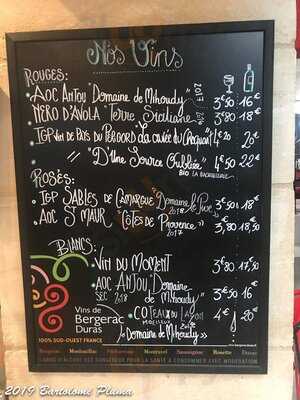 Nos Vins
ROUGES:
AOC ANJOU "Domaine de Mihoudy" 2017 3€50 16€
NERO D'AVOLA "Terre Siciliane" 3€80 18€
IGP Vin de PAYS du PERIGORD La cuvée du Croquant 4€20 20€
" "D'Une Source Oubliée" 4€50 22€
BIO LA
ROSÉS:
IGP SABLES de CAMARGUE "Domaine le Pive" 2018 3€50 18€
AOC St MAUR "CÔTES de PROVENCE" 2017 3€80 18€50
BLANCS:
VIN DU MOMENT 3€80 17€50
AOC ANJOU "Domaine de Mihoudy" 3€50 16€
SEC 2018
COTEAU DU LAYON 4€ 20€
MOELLEUX
"Domaine de Mihoudy"
Vins de
Bergerac
Duras
100% SUD-OUEST FRANCE
Bergerac Monbazillac Pécharmant Montravel Saussignac Rosette Duras
L'ABUS D'ALCOOL EST DANGEREUX POUR LA SANTÉ À CONSOMMER AVEC MODÉRATION
2019 Bartolome Pluma